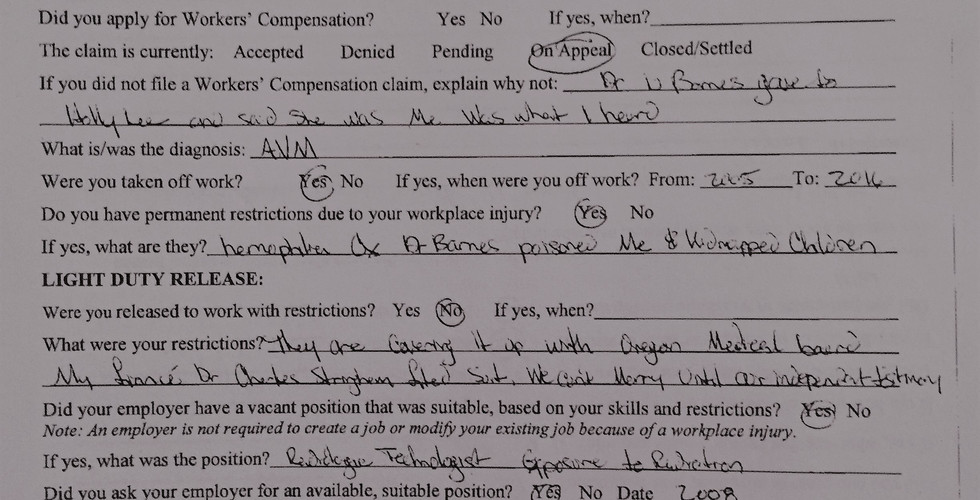 Did you apply for Workers' Compensation? Yes No If yes, when?
The claim is currently: Accepted Denied Pending On Appeal Closed/Settled
If you did not file a Workers' Compensation claim, explain why not: Dr Barnes gave to
Holly Lee and said she was Me was what I heard
What is/was the diagnosis: AVM
Were you taken off work? Yes No If yes, when were you off work? From: 2005 To: 2016
Do you have permanent restrictions due to your workplace injury? Yes No
If yes, what are they? Dr Barnes poisoned Me & Kidnapped Children
LIGHT DUTY RELEASE:
Were you released to work with restrictions? Yes No If yes, when?
What were your restrictions? They are Covering it up with Oregon Medical board
My fiancé Dr Charles filed suit. We can't Marry Until our testimony
Did your employer have a vacant position that was suitable, based on your skills and restrictions? Yes No
Note: An employer is not required to create a job or modify your existing job because of a workplace injury.
If yes, what was the position? Radiologic Technologist Exposure to Radiation
Did you ask your employer for an available, suitable position? Yes No Date 2008